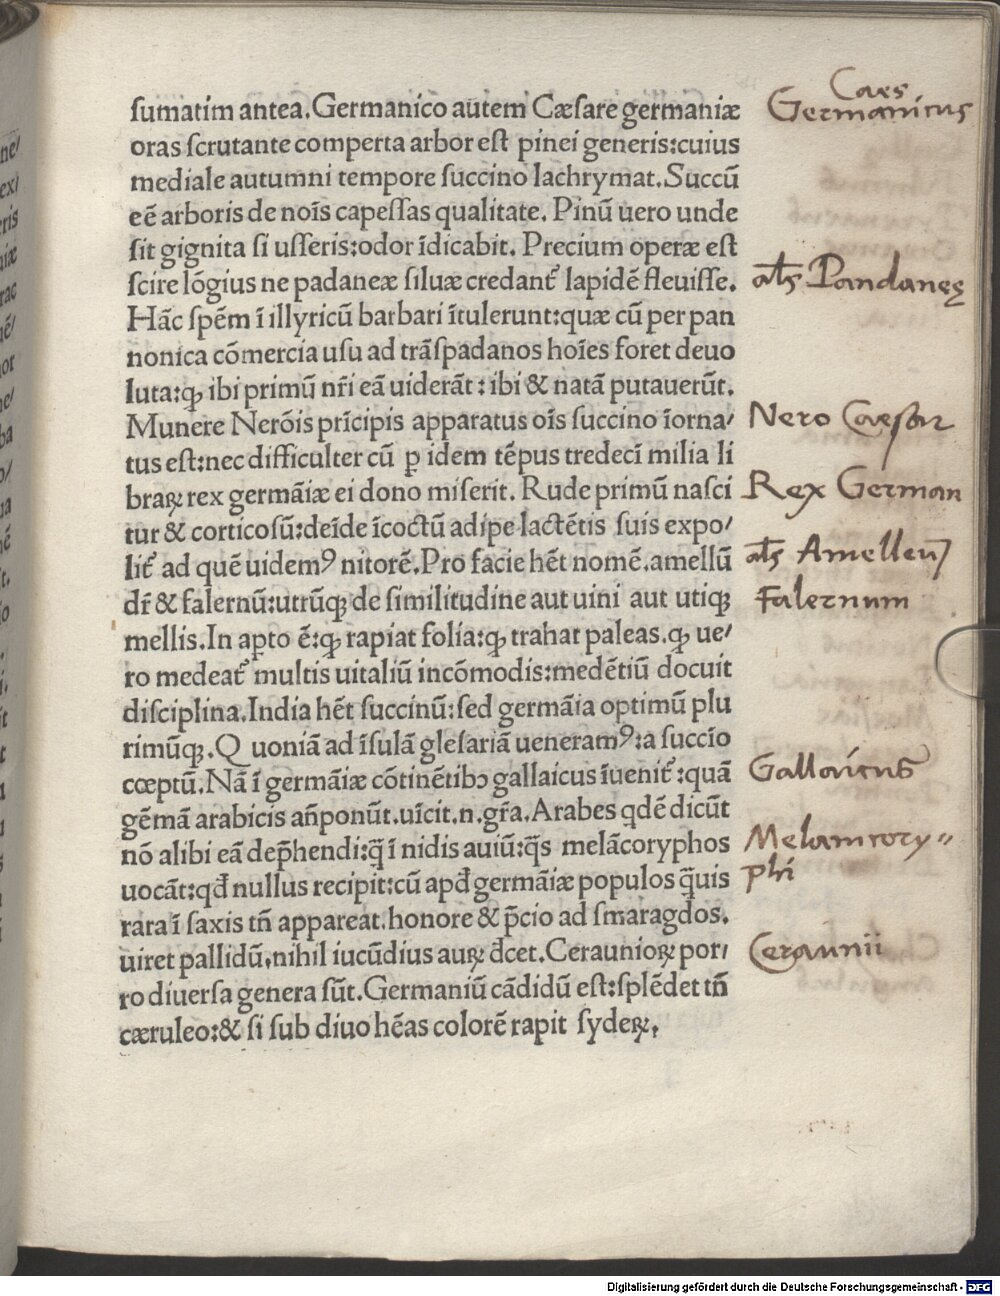 sumatim antea. Germanico autem Cæsare germaniæ
oras scrutante comperta arbor est pinei generis: cuius
mediale autumni tempore succino lachrymat. Succū
eē arboris de noīs capessas qualitate. Pinū uero unde
sit gignita si usseris: odor īdicabit. Precium operæ est
scire lōgius ne padaneæ siluæ credant᷑ lapidē fleuisse.
Hāc spēm ī illyricū barbari ītulerunt: quæ cū per pan
nonica cōmercia usu ad trāspadanos hoīes foret deuo
luta: ꝙ ibi primū nr̄i eā uiderāt: ibi & natā putauerūt.
Munere Nerōis prīcipis apparatus oīs succino īorna/
tus est: nec difficulter cū ꝑ idem tēpus tredecī milia li
braꝝ rex germāiæ ei dono miserit. Rude primū nasci
tur & corticosū: deīde īcoctū adipe lactētis suis expo/
lit᷑ ad quē uidemꝰ nitorē. Pro facie hēt nomē. amellū
dr̄ & falernū: utrūqꝫ de similitudine aut uini aut utiqꝫ
mellis. In apto ē: ꝙ rapiat folia: ꝙ trahat paleas. ꝙ ue/
ro medeat᷑ multis uitaliū incōmodis: medētiū docuit
disciplina. India hēt succinū: sed germāia optimū plu
rimūqꝫ. Q uoniā ad īsulā glesariā ueneramꝰ: a succīo
cœptū. Nā ī germāiæ cōtinētibꝫ gallaicus īuenit᷑: quā
gēmā arabicis an̄ponūt. uīcit. n. gr̄a. Arabes qdē dicūt
nō alibi eā dep̄hendi: q̄ ī nidis auiū: q̄s melācoryphos
uocāt: qđ nullus recipit: cū apđ germāiæ populos q̄uis
rara ī saxis tn̄ appareat. honore & p̄cio ad smaragdos.
uiret pallidū, nihil iucūdius auꝝ đcet. Ceraunioꝝ por/
ro diuersa genera sūt. Germaniū cādidū est: splēdet tn̄
cæruleo: & si sub diuo hēas colorē rapit sydeꝝ.
Caes
Germanicus
als Pandaneę
Nero Caesar
Rex German
als Amelleū
Falernum
Gallaicus
Melamcory=
phi
Ceraunii
Digitalisierung gefördert durch die Deutsche Forschungsgemeinschaft - DFG